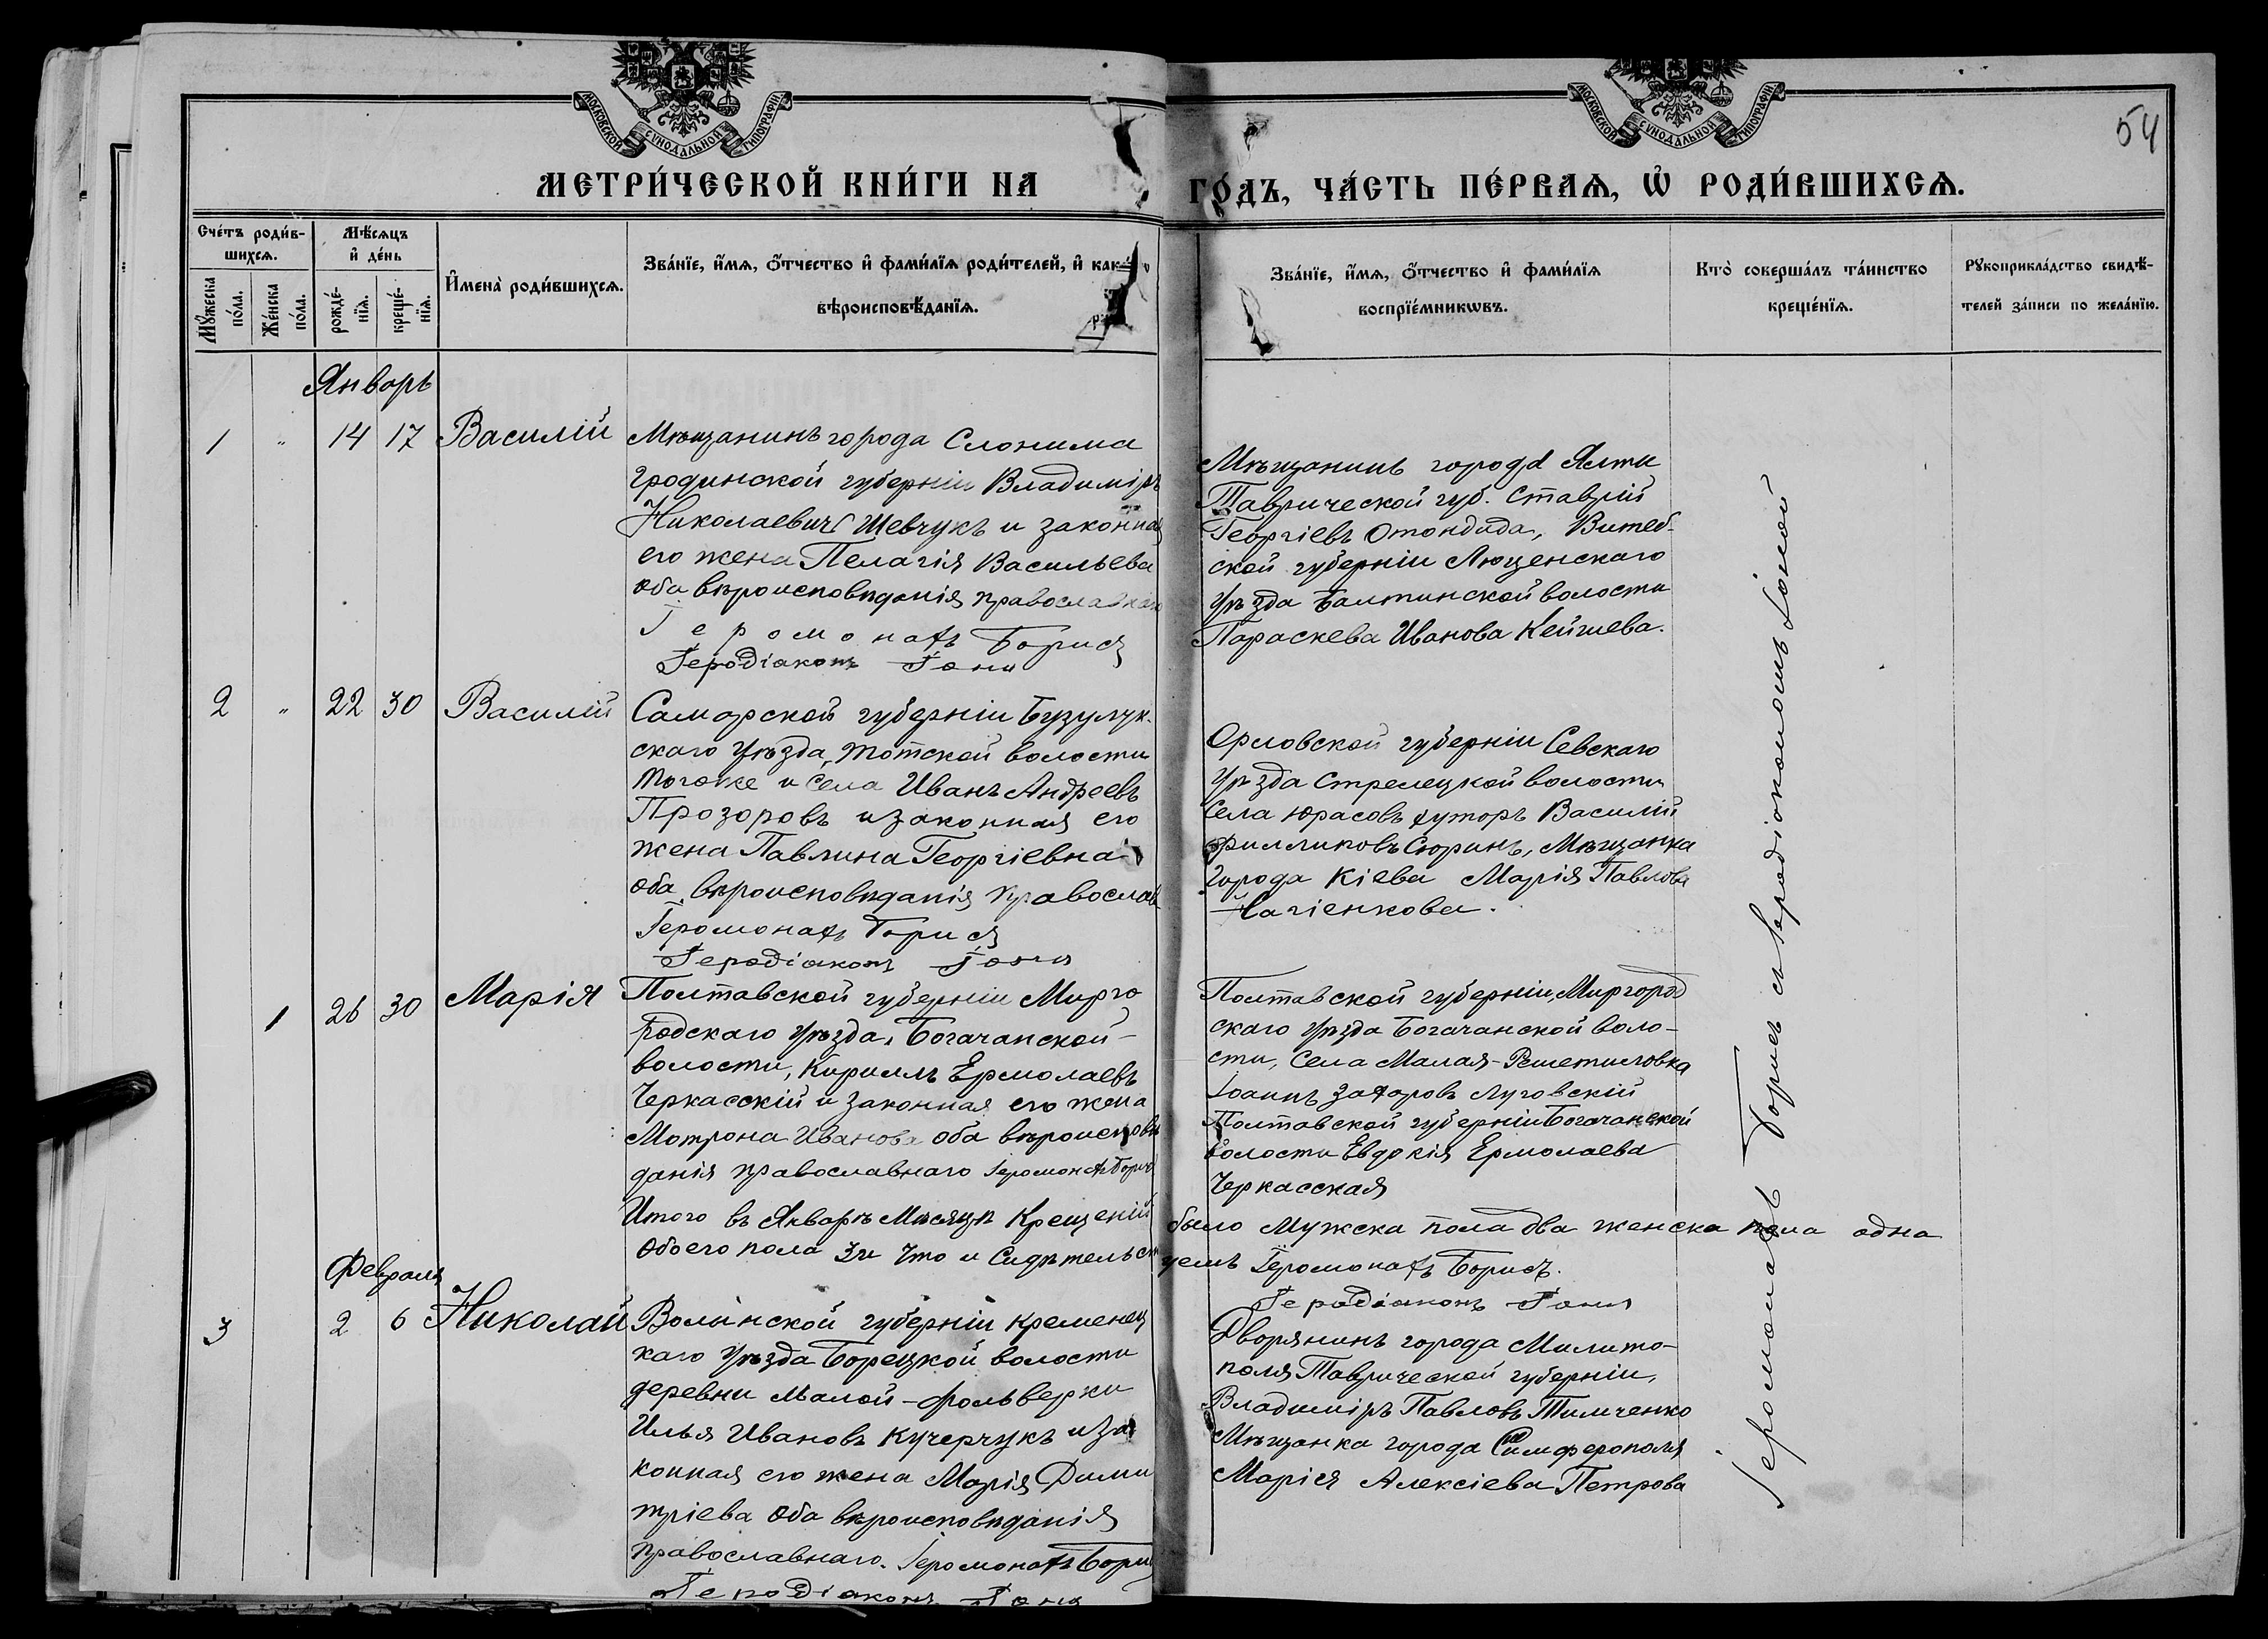 МОСКОВСКОЙ СѴНОДАЛЬНОЙ ТИПОГРАФІИ
МОСКОВСКОЙ СѴНОДАЛЬНОЙ ТИПОГРАФІИ
54
МЕТРИ́ЧЕСКОЙ КНИ́ГИ НА ГО́ДЪ, ЧА́СТЬ ПЕ́РВАѦ, Ѡ҆ РОДИ́ВШИХСѦ.
Сче́тъ роди́в-
шихсѧ.
Мꙋ́жеска по́ла.
Же́нска по́ла.
Мѣ́сѧцъ
и҆ де́нь
рожде́-
нїѧ.
креще́-
нїѧ.
И҆мена̀ роди́вшихсѧ.
Зва́нїе, и҆́мѧ, ѻ҆́тчество и҆ фами́лїѧ роди́телей, и҆ как
вѣроисповѣ́данїѧ.
Зва́нїе, и҆́мѧ, ѻ҆́тчество и҆ фами́лїѧ
воспрїе́мникѡвъ.
Кто̀ соверша́лъ та́инство
креще́нїѧ.
Рꙋкоприкла́дство свидѣ́-
телей за́писи по жела́нїю.
Январь
1 " 14 17 Василій
Мѣщанинъ города Слонима
Гродинской губерніи Владиміръ
Николаевич Шевчукъ и законная
его жена Пелагія Васильева
оба вѣроисповѣданія православнаго
Іеромонахъ Борисъ
Іеродіаконъ Іона
Мѣщанинъ города Ялти
Таврической губ. Ставрій
Георгіевъ Отондида, Витеб-
ской губерніи Люценскаго
уѣзда Балтинской волости
Параскева Иванова Кейшева.
2 " 22 30 Василій
Самарской губерніи Бузулук-
скаго уѣзда, Тотской волости
тогоже и села Иванъ Андреевъ
Прозоровъ и законная его
жена Павлина Георгіевна
оба вѣроисповѣданія православ
Іеромонахъ Борисъ
Іеродіаконъ Іона
Орловской губерніи Севскаго
уѣзда Стрелецкой волости
села Юрасовъ хуторъ Василій
Филликовъ Сюринъ, Мѣщанка
города Кіева Марія Павлова
1 26 30 Марія
Полтавской губерніи Мирго
родскаго уѣзда, Богачанской-
волости, Кириллъ Ермолаевъ
Черкасскій и законная его жена
Мотрона Иванова оба вѣроисповѣ
данія православнаго Іеромонахъ Борисъ
Полтавской губерніи, Миргород
скаго уѣзда Богачанской воло-
сти, села Малая-Решетиловка
Іоаннъ Захаровъ Луговскій
Полтавской губерніи Богачанской
волости Евдокія Ермолаева
Черкасская
Итого въ Январѣ Мѣсяцѣ Крещеній было Мужска пола два женска пола одна
обоего пола 3и что и Сидѣтельст уемъ Іеромонахъ Борисъ.
Іеродіаконъ Іона
Февраль
3 2 6 Николай
Волынской губерніи Кременец
каго уѣзда Борецкой волости
деревни Малой-Фольверки
Илья Ивановъ Кучерчукъ и за
конная его жена Марія Дими
тріева оба вѣроисповѣданія
православнаго. Іеромонахъ Борис
Іеродіаконъ Іона
Дворянинъ города Милито-
поля Таврической губерніи,
Владиміръ Павловъ Тимченко
Мѣщанка города Симферополя
Марія Алексіева Петрова
Іеромонахъ Борисъ съ Іеродіакономъ Іоной